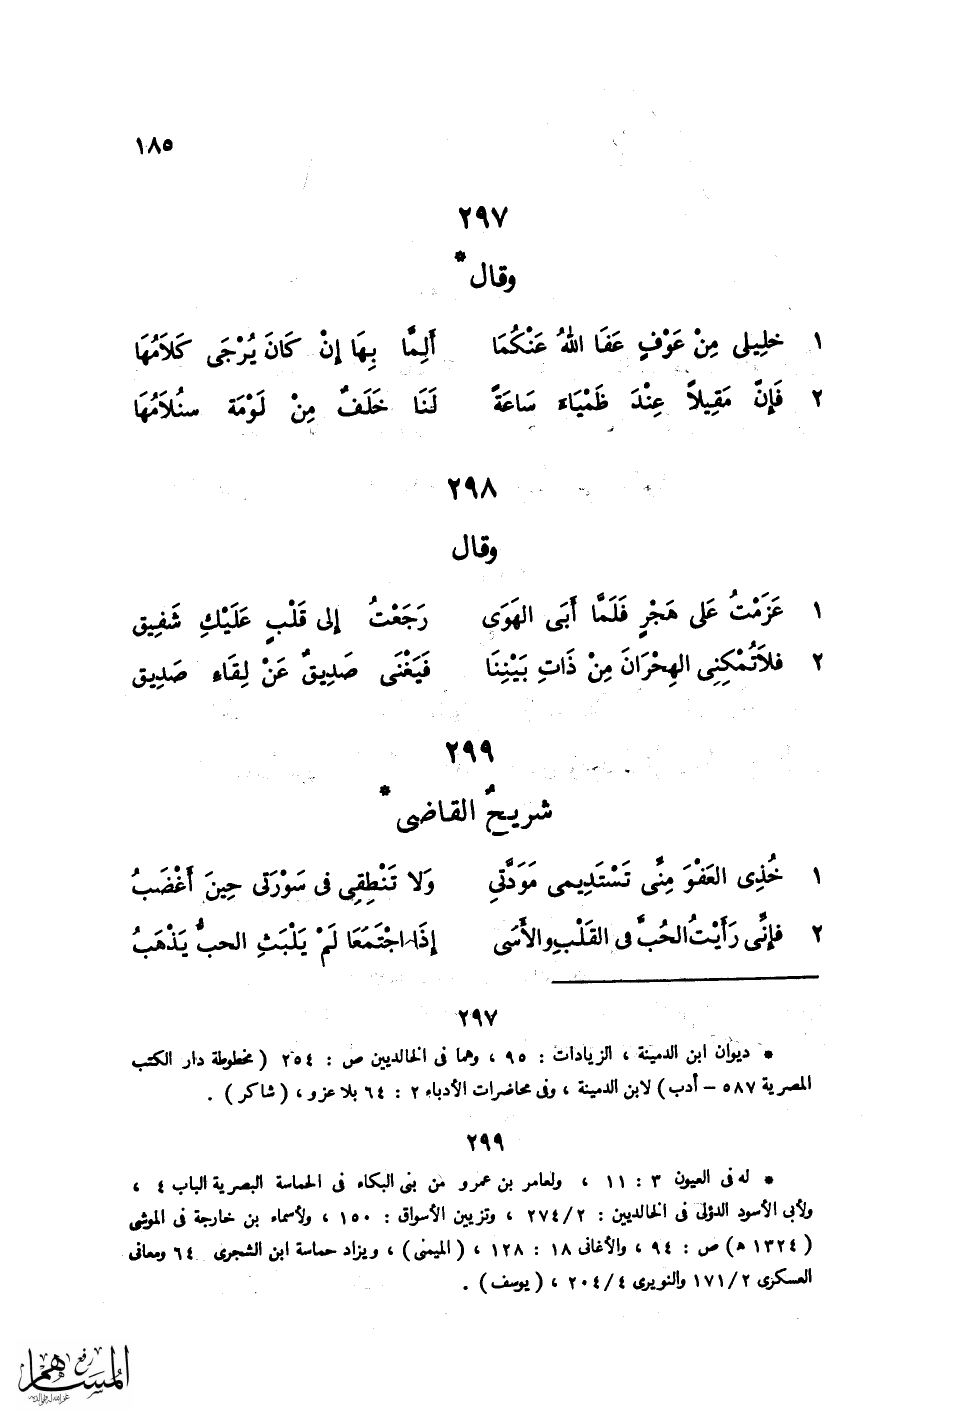 ١٨٥
٢٩٧
وقال*
١ خلِيلى مِنْ عَوْفٍ عَفَا اللهُ عَنْكُمَا أَلِمَّا بِهَا إِنْ كَانَ يُرْجَى كَلاَمُهَا
٢ فَإِنَّ مَقِيلاً عِنْدَ ظَمْيَاءَ سَاعَةً لَنَا خَلَفٌ مِنْ لَوْمَة سنُلاَمُهَا
٢٩٨
وقال
١ عَزَمْتُ عَلَى هَجْرٍ فَلَمَّا أَبَى الهَوَى رَجَعْتُ إِلى قَلْبٍ عَلَيْكِ شَفِيق
٢ فلاَتُمْكِنِى الهِجْرَانَ مِنْ ذَاتِ بَيْنِنَا فَيَغْنَى صَدِيقٌ عَنْ لِقَاءِ صَدِيق
٢٩٩
شريحٌ القاضى*
١ خُذِى العَفْوَ مِنِّى تَسْتَدِيمى مَوَدَّتِي وَلا تَنْطِقِى فى سَوْرَتى حِينَ أَغْضَبُ
٢ فإنِّى رَأَيْتُ الحُبَّ فى القَلْبِ والأَسَى إِذَا اجْتَمَعَا لَمْ يَلْبَثِ الحبُّ يَذْهَبُ
٢٩٧
* ديوان ابن الدمينة ، الزيادات : ٩٥ ، وهما فى الخالديين ص : ٢٥٤ ( مخطوطة دار الكتب
المصرية ٥٨٧ – أدب ) لابن الدمينة ، وفى محاضرات الأدباء ٢ : ٦٤ بلا عزو ، ( شاكر ) .
٢٩٩
* له فى العيون ٣ : ١١ ، ولعامر بن عمرو من بنى البكاء فى الحماسة البصرية الباب ٤ ،
ولأبى الأسود الدؤلى فى الخالديين : ٢٧٤/٢ ، وتزيين الأسواق : ١٥٠ ، ولأسماء بن خارجة فى الموشى
( ١٣٢٤ هـ ) ص : ٩٤ ، والأغانى ١٨ : ١٢٨ ، ( الميمنى ) ، ويزاد حماسة ابن الشجرى ٦٤ ومعانى
العسكرى ١٧١/٢ والنويرى ٢٠٤/٤ ، ( يوسف ) .
رفع
المساهم